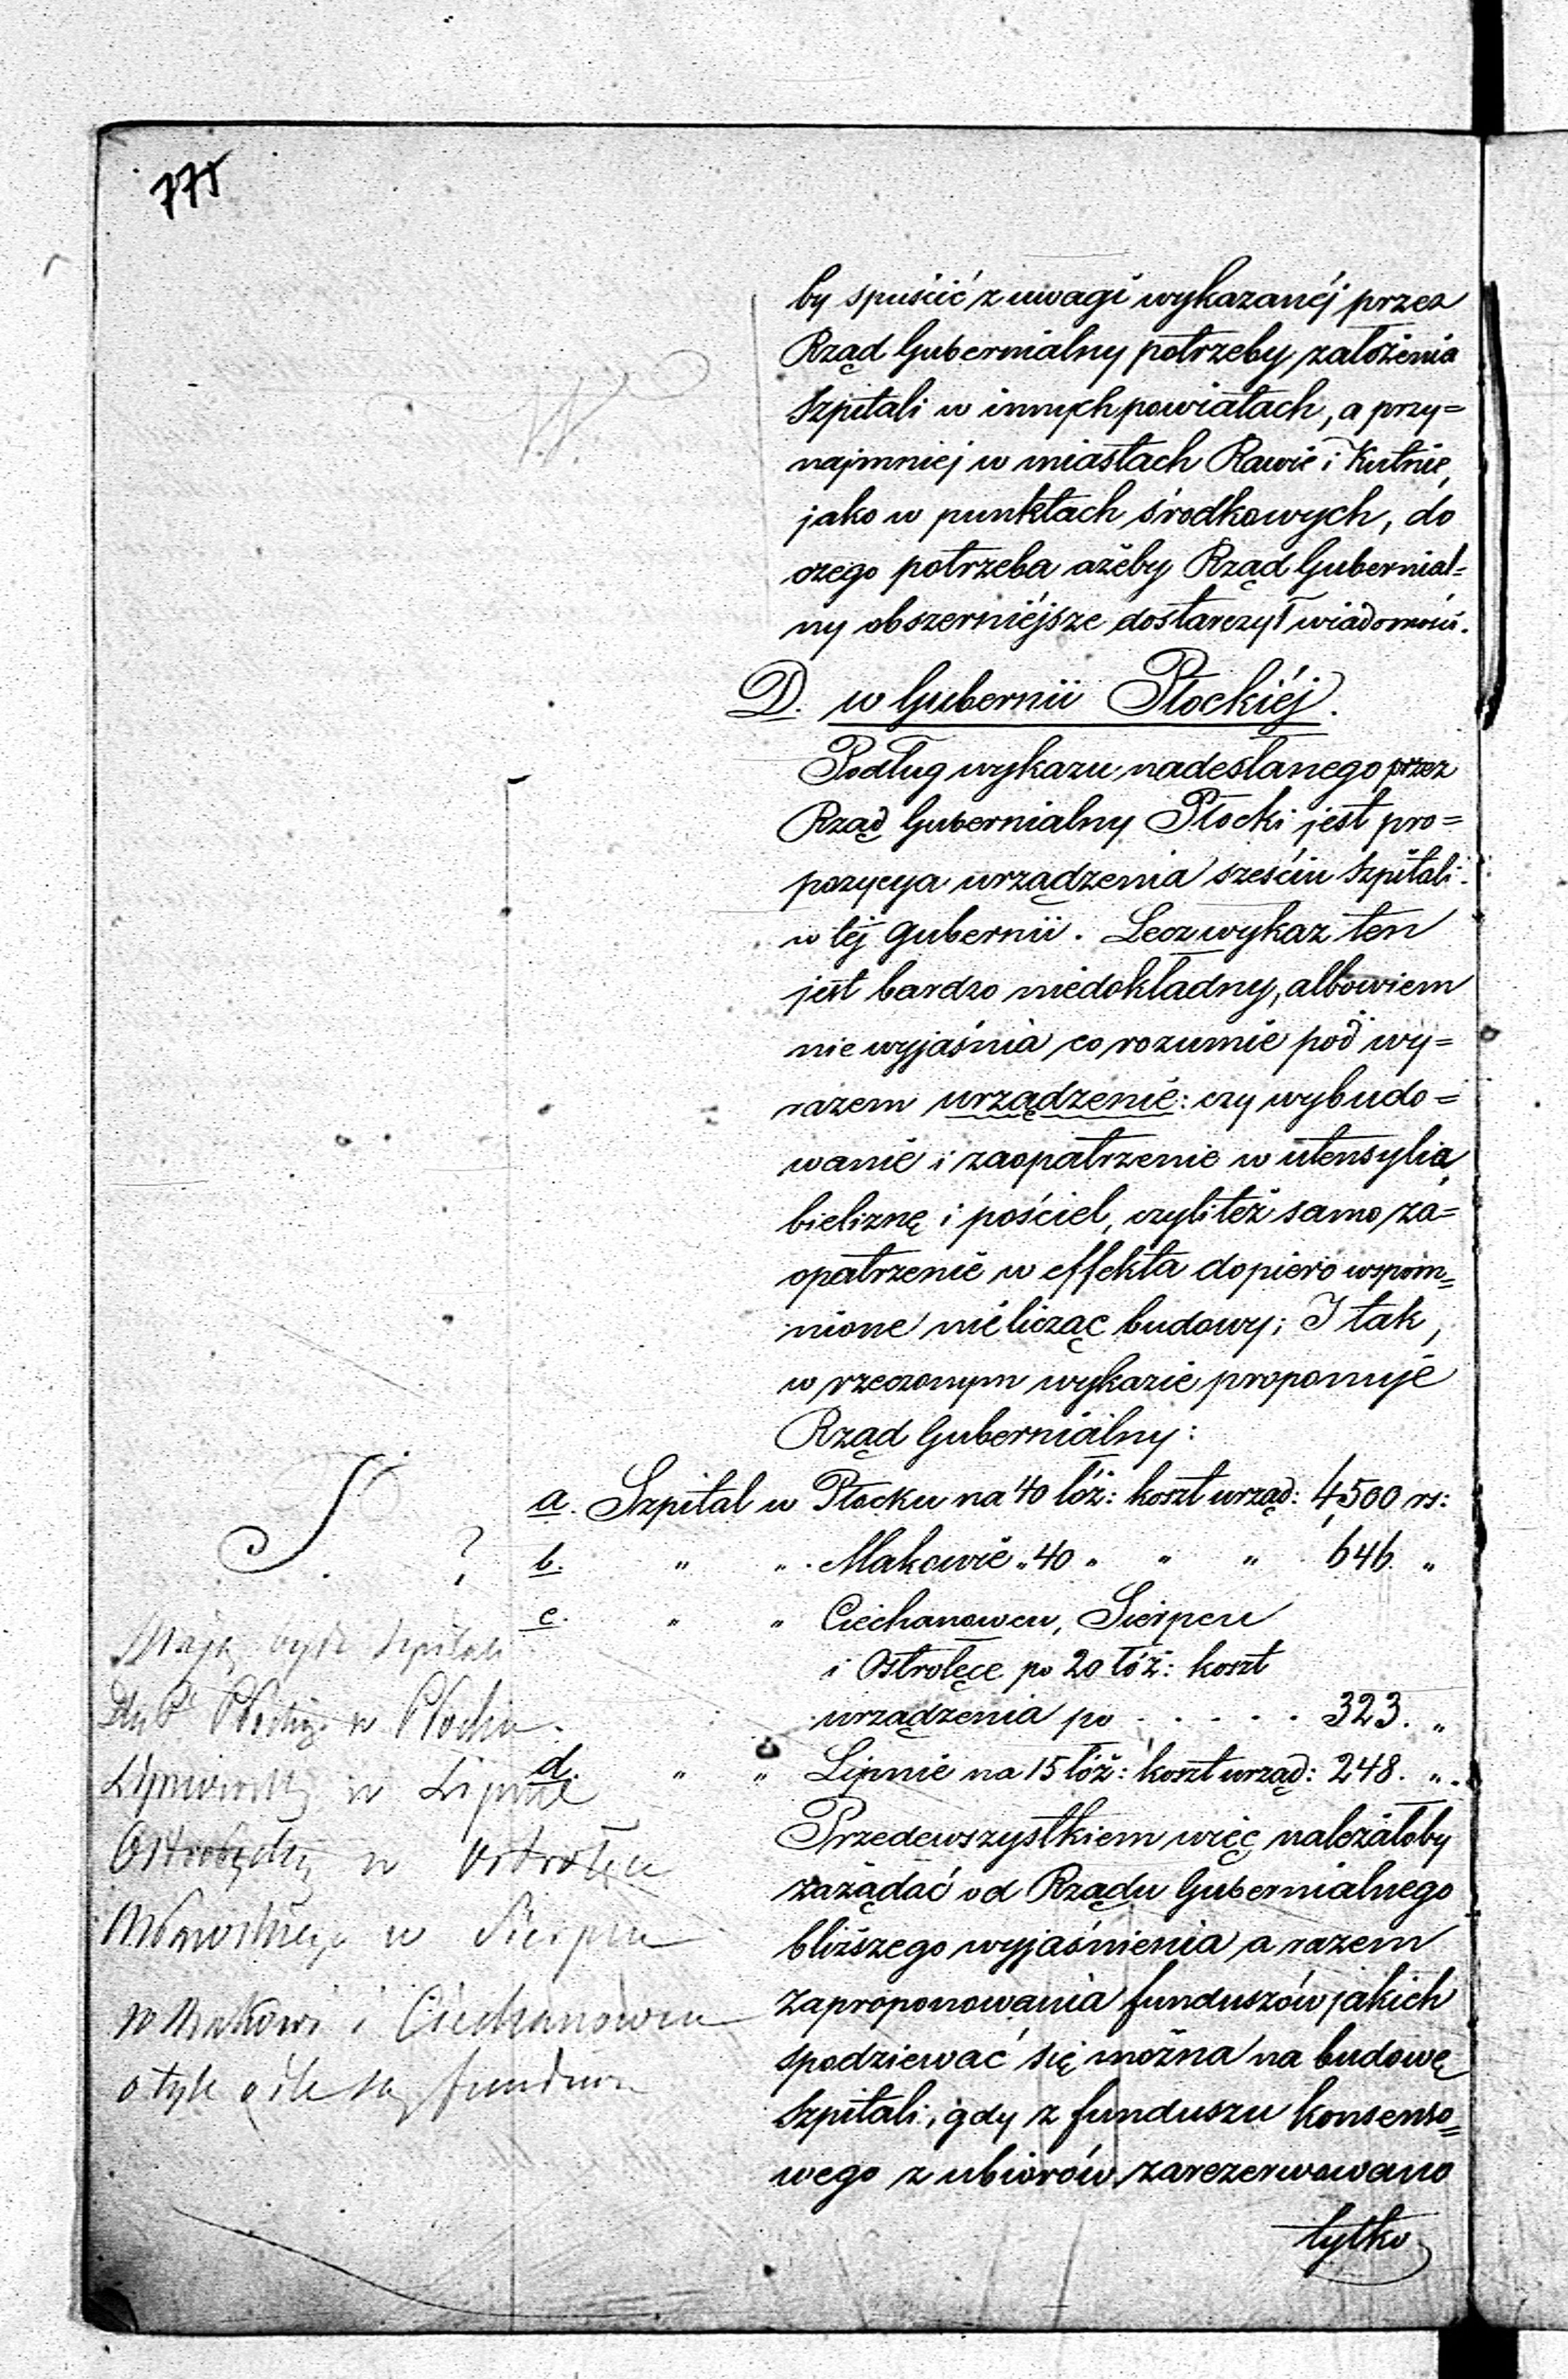 775
by spuścić z uwagi wykazanéj przez
Rząd Gubernialny potrzeby założenia
Szpitali w innych powiatach, a przy=
najmniej w miastach Rawie i Kutnie,
jako w punktach środkowych, do
czego potrzeba ażeby Rząd Gubernial=
ny obszerniéjsze dostarczył wiadomości.
D. w Gubernii Płockiéj.
Podług wykazu nadesłanego przez
Rząd Gubernialny Płocki jest pro=
pozycya urządzenia sześciu Szpitali
w téj Gubernii. Lecz wykaz ten
jest bardzo niedokładny, albowiem
nie wyjaśnia co rozumie pod wy=
razem urządzenie: czy wybudo=
wanie i zaopatrzenie w utensylia,
bieliznę i pościel, czyli też samo za=
opatrzenie w effekta dopiero wspom=
nione nie licząc budowy; I tak,
w rzeczonym wykazie proponuje
Rząd Gubernialny:
a. Szpital w Płocku na 40 łóż: koszt urząd: 4,500 rs:
? b. " " Makowie " 40 " " " 646. "
c. " " Ciechanowcu, Sierpcu
i Ostrołęce po 20 łóż: koszt
urządzenia po . . . . . 323. "
d. " " Lipnie na 15 łóż: koszt urząd: 248. "
Przedewszystkiem więc należałoby
zażądać od Rządu Gubernialnego
bliższego wyjaśnienia a razem
zaproponowania funduszów jakich
spodziewać się można na budowę
Szpitali, gdy z funduszu konsenso=
wego z ubiorów zarezerwowano
tylko
Mają być Szpitale
Dla Pu Płockiego w Płocku.
Lipnowski w Lipnie
w Ostrołęce
w Sierpcu
w Makowie i Ciechanowcu
o tyle o ile są fundusze